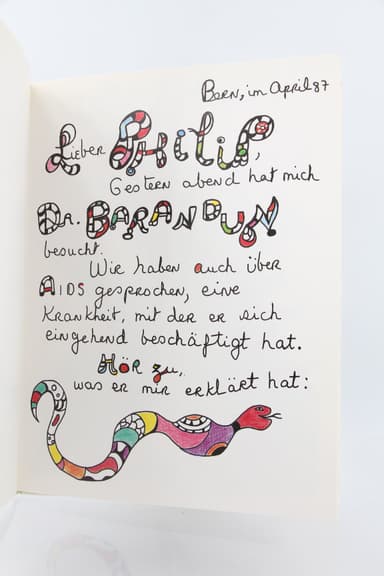 Bern, im April 87
Lieber Philip,
Gestern abend hat mich
Dr. Barandun
besucht.
Wir haben auch über
AIDS gesprochen, eine
Krankheit, mit der er sich
eingehend beschäftigt hat.
Hör zu,
was er mir erklärt hat: